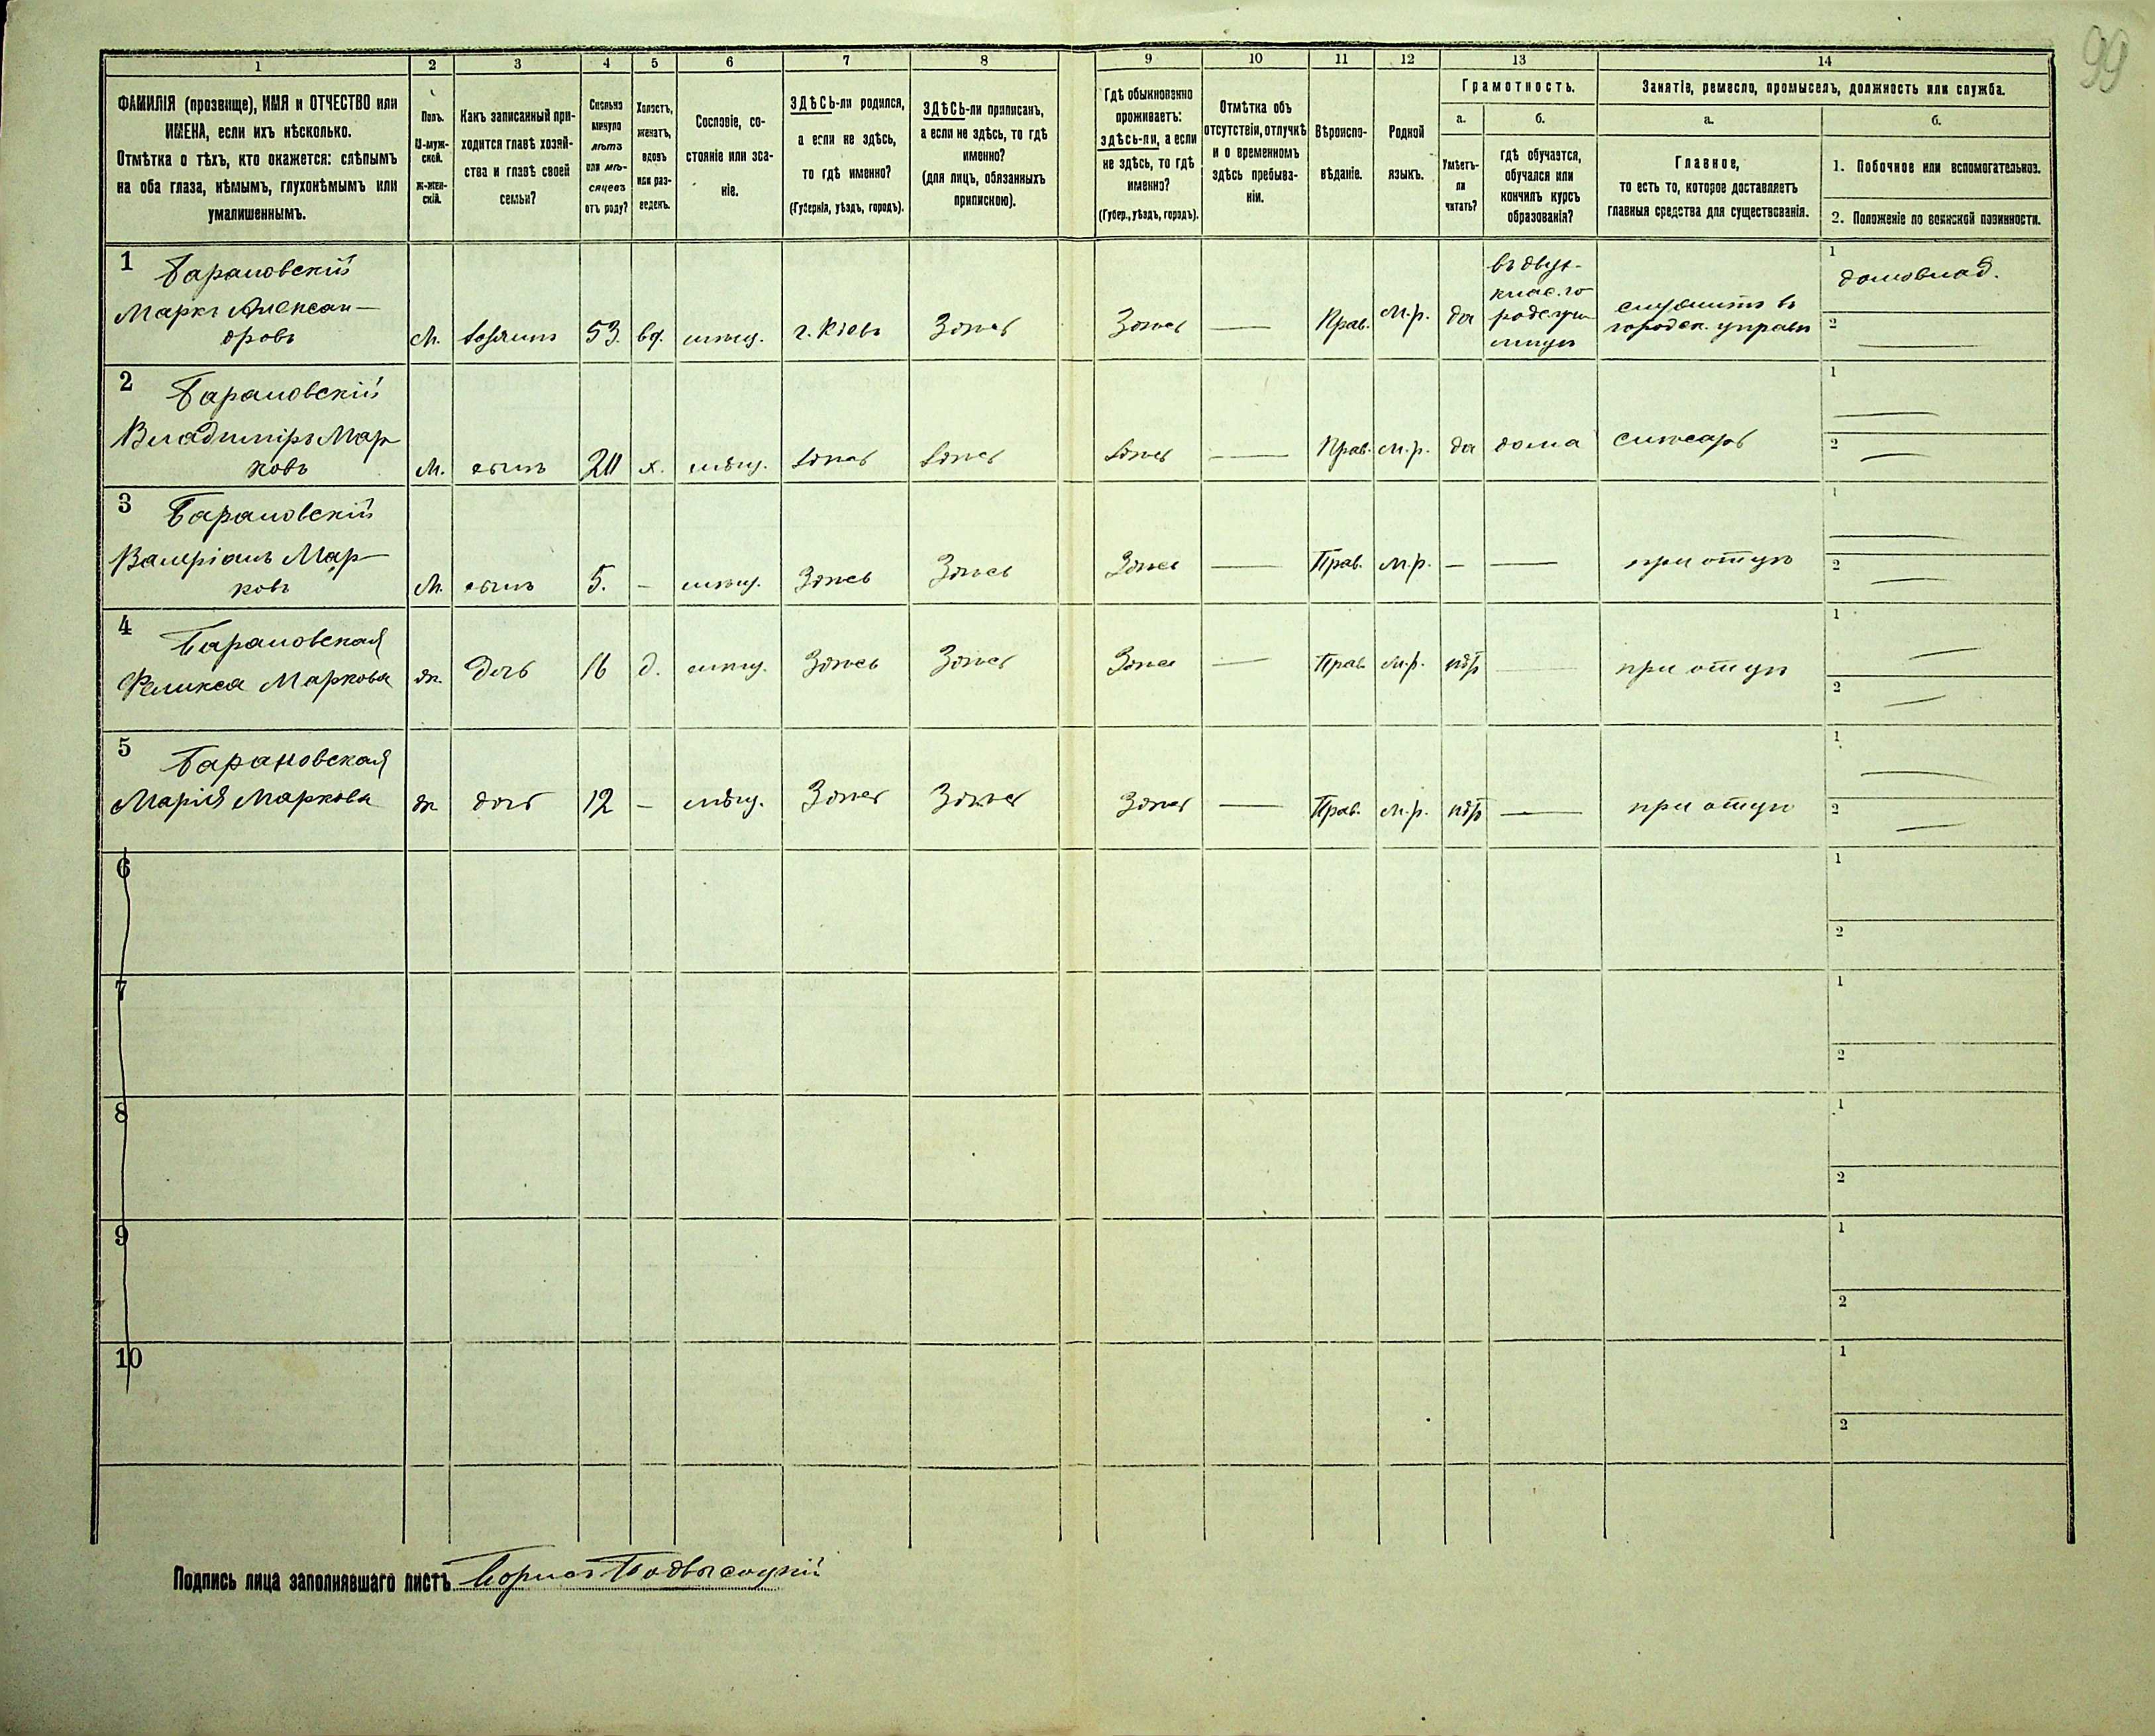 99
1
2
3
4
5
6
7
8
9
10
11
12
13
14
ФАМИЛІЯ (прозвище), ИМЯ и ОТЧЕСТВО или
ИМЕНА, если ихъ нѣсколько.
Отмѣтка о тѣхъ, кто окажется: слѣпымъ
на оба глаза, нѣмымъ, глухонѣмымъ или
умалишеннымъ.
Полъ.
М-муж-
ской.
Ж-жен-
скій.
Какъ записанный при-
ходится главѣ хозяй-
ства и главѣ своей
семьи?
Сколько
минуло
лѣтъ
или мѣ-
сяцевъ
отъ роду?
Холостъ,
женатъ,
вдовъ
или раз-
веденъ.
Сословіе, со-
стояніе или зва-
ніе.
ЗДѢСЬ-ли родился,
а если не здѣсь,
то гдѣ именно?
(Губернія, уѣздъ, городъ).
ЗДѢСЬ-ли приписанъ,
а если не здѣсь, то гдѣ
именно?
(для лицъ, обязанныхъ
припискою).
Гдѣ обыкновенно
проживаетъ:
здѣсь-ли, а если
не здѣсь, то гдѣ
именно?
(Губер., уѣздъ, городъ).
Отмѣтка объ
отсутствіи, отлучкѣ
и о временномъ
здѣсь пребыва-
ніи.
Вѣроиспо-
вѣданіе.
Родной
языкъ.
Грамотность.
а.
Умѣетъ-
ли
читать?
б.
гдѣ обучается,
обучался или
кончилъ курсъ
образованія?
Занятіе, ремесло, промыселъ, должность или служба.
а.
Главное,
то есть то, которое доставляетъ
главныя средства для существованія.
б.
1. Побочное или вспомогательное.
2. Положеніе по воинской повинности.
1
Барановскій
Маркъ Алексан-
дровъ
М.
хозяинъ
53.
вд.
мѣщ.
г. Кіевъ
Здѣсь
Здѣсь
—
Прав.
м.р.
да
въ двух-
клас. го
род. учи
лищѣ
служитъ въ
городск. управѣ
1
домовлад.
2
—
2
Барановскій
Владиміръ Мар
ковъ
М.
сынъ
20
х.
мѣщ.
Здѣсь
Здѣсь
Здѣсь
—
Прав.
м.р.
да
дома
слесарь
1
—
2
—
3
Барановскій
Валеріанъ Мар-
ковъ
М.
сынъ
5.
–
мѣщ.
Здѣсь
Здѣсь
Здѣсь
—
Прав.
м.р.
–
—
при отцѣ
1
—
2
—
4
Барановская
Феликса Маркова
ж.
дочь
16
д.
мѣщ.
Здѣсь
Здѣсь
Здѣсь
—
Прав.
м.р.
нѣтъ
—
при отцѣ
1
—
2
—
5
Барановская
Марія Маркова
ж
дочь
12
–
мѣщ.
Здѣсь
Здѣсь
Здѣсь
—
Прав.
м.р.
нѣтъ
—
при отцѣ
1
—
2
—
6
1
2
7
1
2
8
1
2
9
1
2
10
1
2
Подпись лица заполнявшаго листъ Борисъ Подвысоцкій